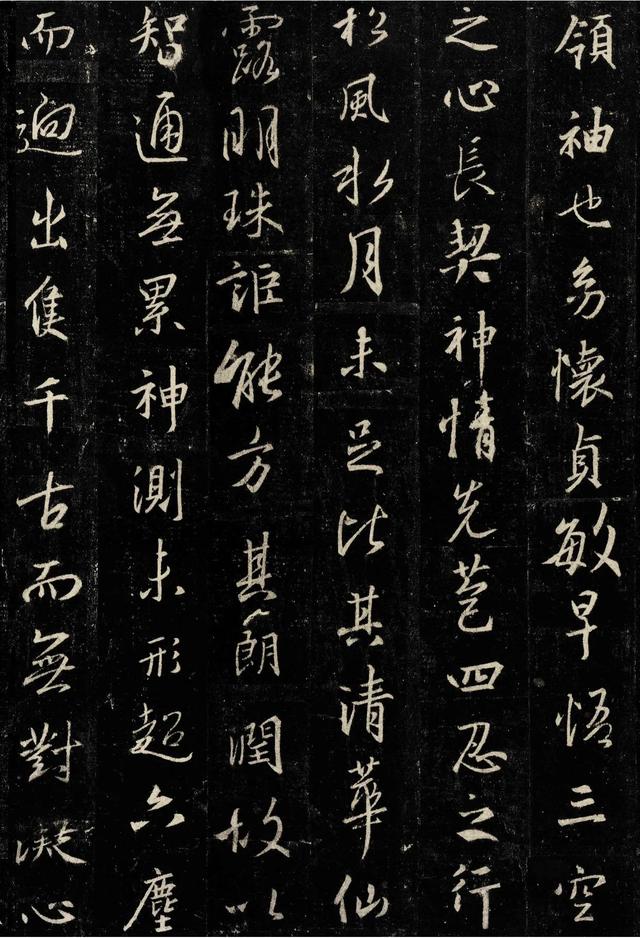 領袖也幼懷貞敏早悟三空
之心長契神情先苞四忍之行
松風水月未足比其清華仙
露明珠詎能方其朗潤故以
智通無累神測未形超六塵
而迥出隻千古而無對凝心